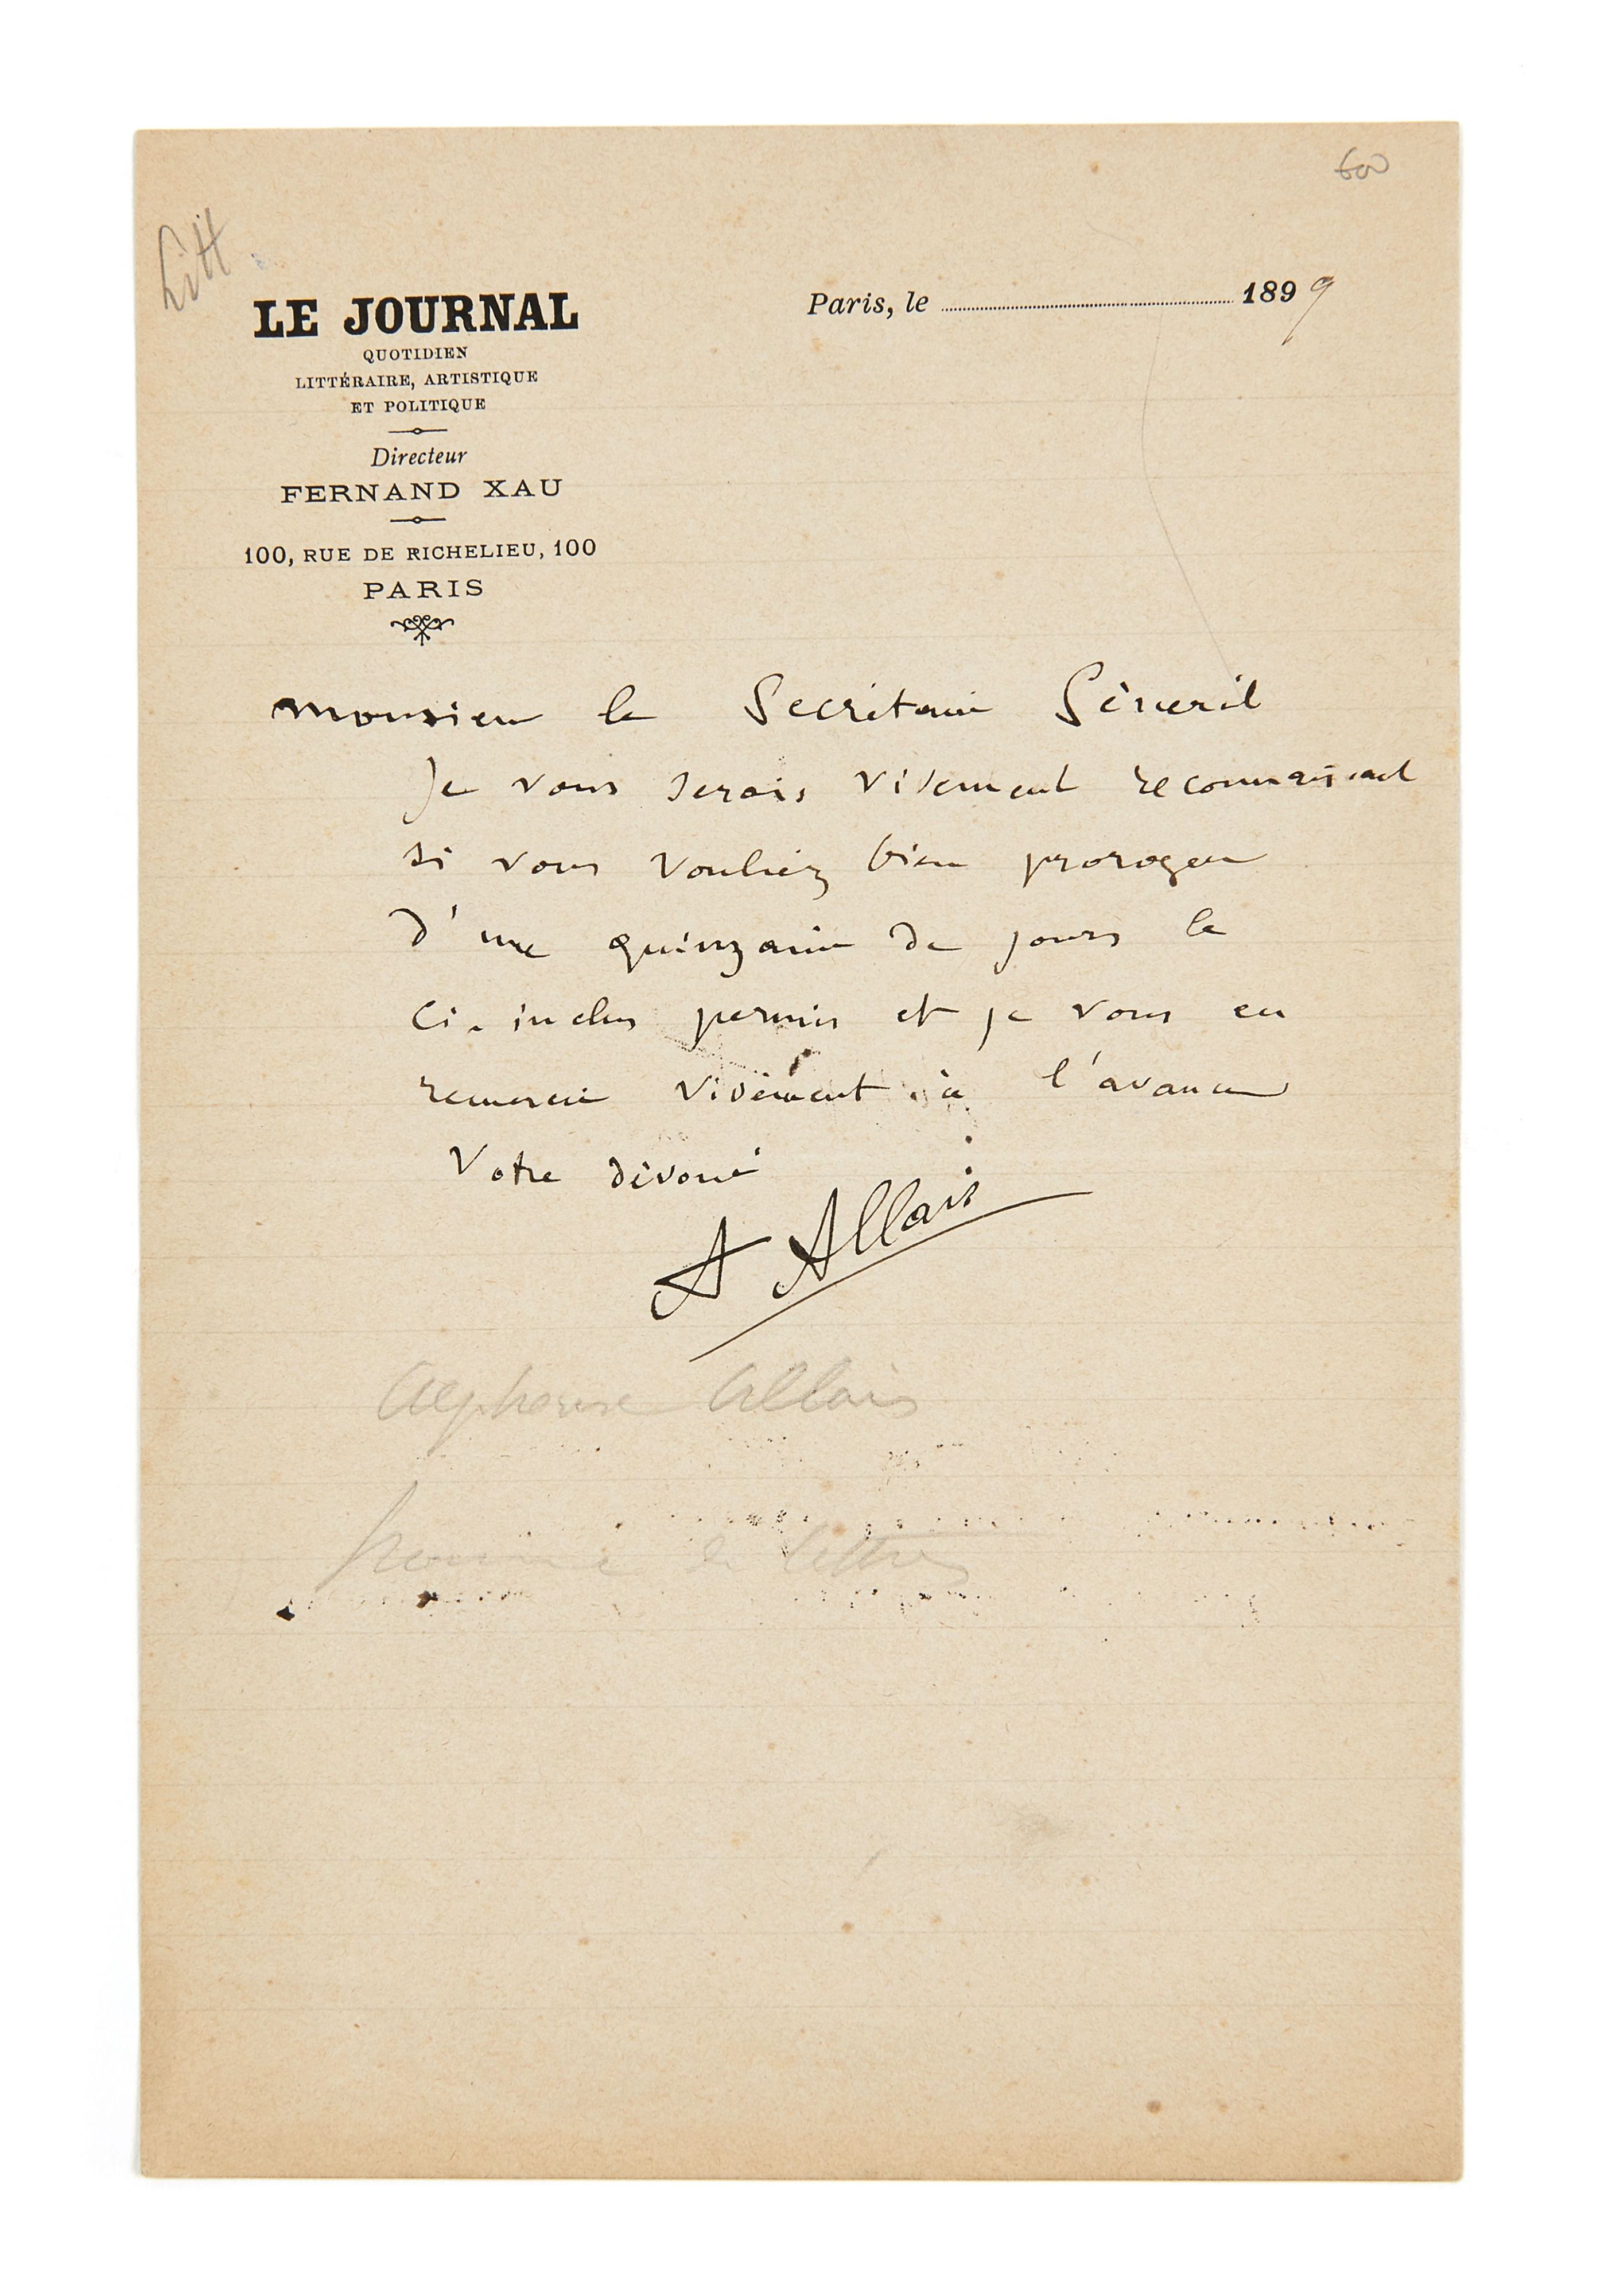 600
Litt
LE JOURNAL
QUOTIDIEN
LITTÉRAIRE, ARTISTIQUE
ET POLITIQUE
Directeur
FERNAND XAU
100, RUE DE RICHELIEU, 100
PARIS
Paris, le 1899
Monsieur le Secrétaire Général
Je vous serais vivement reconnaissant
si vous vouliez bien proroger
d'une quinzaine de jours le
ci-inclus permis et je vous en
remercie vivement à l'avance
Votre dévoué
A Allais
Alphonse Allais
homme de lettres